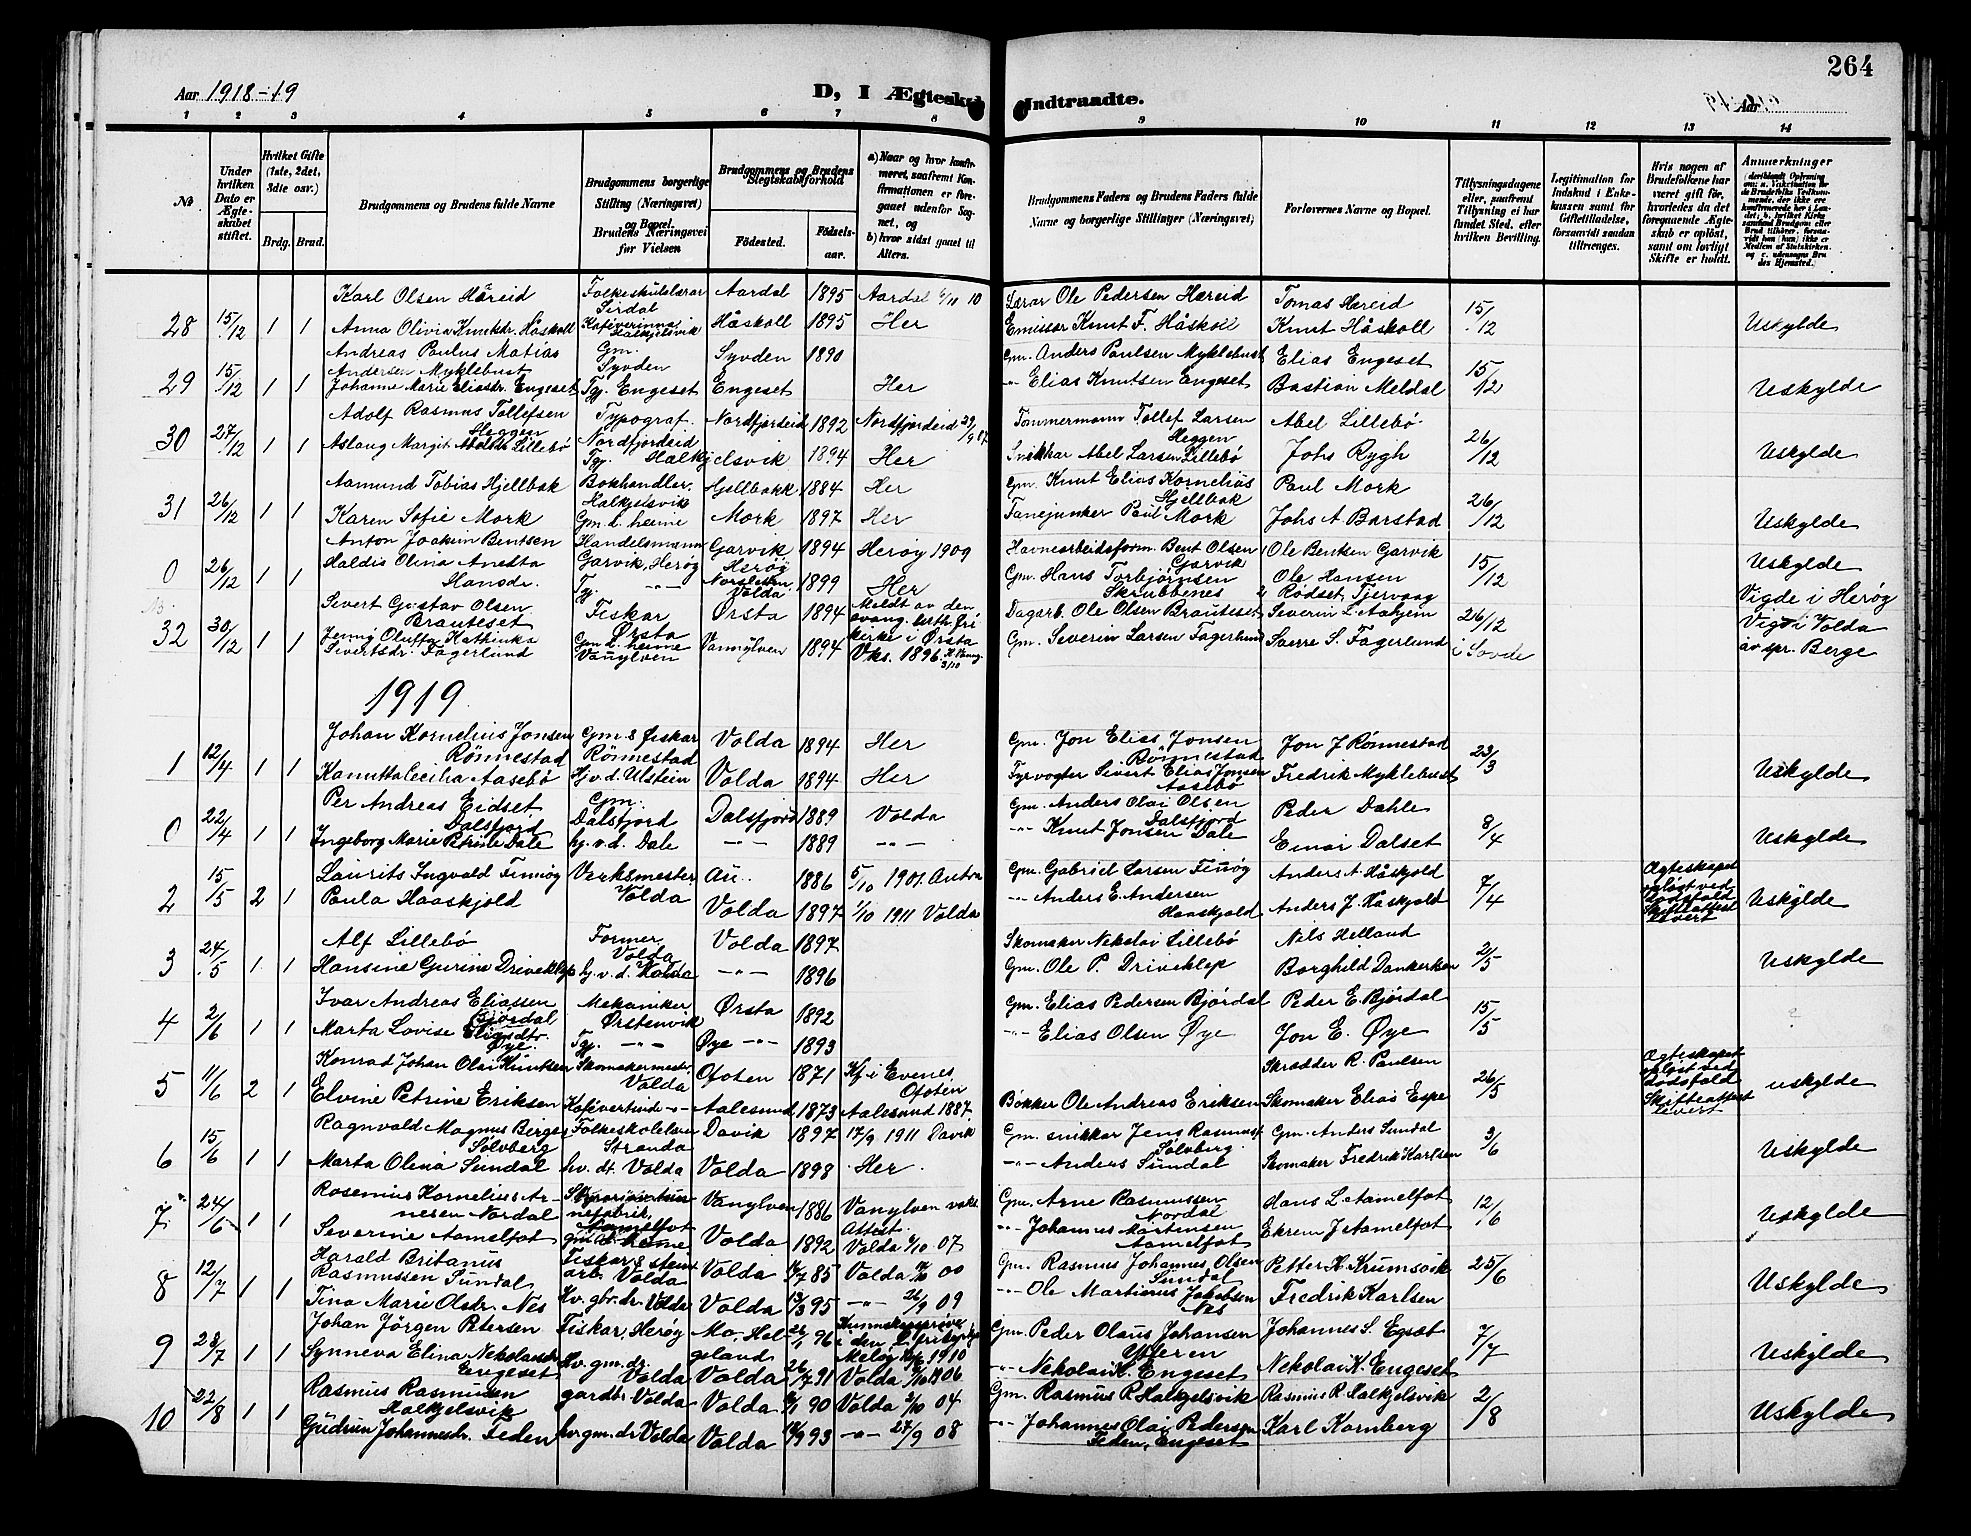 264
Aar 1918-19
D, I Ægtesk
Indtraadte.
Aar
1 2 3 4 5 6 7 8 9 10 11 12 13 14
No
Under hvilken Dato er Ægteskabet stiftet.
Hvilket Gifte (1ste, 2det, 3die osv.)
Brdg. Brud.
Brudgommens og Brudens fulde Navne
Brudgommens borgerlige Stilling (Næringsvei) og Bopæl.
Brudens Næringsvei før Vielsen
Brudgommens og Brudens Slegtskabsforhold
Fødested.
Fødselsaar.
a) Naar og hvor konfirmeret, saafremt Konfirmationen er foregaaet udenfor Sognet, og
b) hvor sidst gaaet til Alters.
Brudgommens Faders og Brudens Faders fulde Navne og borgerlige Stillinger (Næringsvei)
Forlovernes Navne og Bopæl.
Tillysningsdagene eller, saafremt Tillysning ei har fundet Sted, efter hvilken Bevilling.
Legitimation for Indskud i Enkekassen samt for Giftetilladelse, forsaavidt saadan tiltrænges.
Hvis nogen af Brudefolkene har været gift før, hvorledes da det foregaaende Ægteskab er opløst, samt om lovligt Skifte er holdt.
Anmerkninger
Karl Olsen Håreid Folkeskulelærar Sirdal Aardal 1895 Aardal 6/11 10 Lærar Ole Pedersen Hæreid Tomas Hæreid
28 15/12 1 1 Anna Olivia Knutsdr. Håskoll Håskoll 1895 Her Emissær Knut F. Håskoll Knut Håskoll 15/12 Uskylde
Andreas Paulus Matias Andersen Myklebust Gm. Syvden Syvden 1890 Gm. Anders Paulsen Myklebust Elias Engeset
29 15/12 1 1 Johanne Marie Eliasdr. Engeset Tgj. Engeset Engeset Her -"- Elias Knutsen Engeset Bastian Meldal 15/12 Uskylde
Adolf Rasmus Tollefsen Heggen Typograf. Nordfjordeid Nordfjordeid 1892 Nordfjordeid 29/9 07 Tømmermann Tollef Larsen Heggen Abel Lillebö
30 27/12 1 1 Aslaug Margit Abelsdr Lillebø Tgj. Halkjelsvik 1894 Her Snikkar Abel Larsen Lillebö Johs Rygh 26/12 Uskylde
Aamund Tobias Hjellbak Bokhandler, Halkjelsvik Hjellbakk 1884 Her Gm. Knut Elias Kornelius Hjellbak Paul Mork
31 26/12 1 1 Karen Sofie Mork Gm.d. heime Mork 1897 Her Fanejunker Paul Mork Johs A Barstad 26/12 Uskylde
Anton Joakim Bentsen Handelsmann Garvik, Herøy Garvik Herøy 1894 Herøy 1909 Havnearbeidsform. Bent Olsen Garvik Ole Bentsen Garvik
0 26/12 1 1 Haldis Olina Anetta Hansdr. Tj. -"- Volda 1899 Her Gm. Hans Torbjørnsen Skrubbenes Ole Hansen Rødset, Tjervaag 15/12 Uskylde Vigde i Herøy
Sivert Gustav Olsen Brauteset Fiskar Ørsta Ørsta 1894 Meldt av den evang. luth. frikirke i Ørsta Dagarb. Ole Olsen Brauteset Severin L. Aahjem
32 30/12 1 1 Jenny Oluffa Hathinka Sivertsdr. Fagerlund Gm.d. heime Vanylven Vannylven 1894 Vks. 1896 Gm. Severin Larsen Fagerlund Sverre S. Fagerlund 26/12 i Sovde Vigd i Volda av spr. Berge
1919
Johan Kornelius Jonsen Rønnestad Gm & fiskar Rønnestad Volda 1894 Her Gm. Jon Elias Jonsen Rönnestad Jon J Rønnestad
1 12/4 1 1 Kanutta Cecilia Aasebø Hj.v.d. Ulstein Volda 1894 Her Fyrvogter Sivert Elias Jonsen Aasebö Fredrik Myklebust 23/3 Uskylde
Per Andreas Eidset Dalsfjord Gm. Dalsfjord Dalsfjord 1889 Volda Gm. Anders Olai Olsen Dalsfjord Peder Dahle
0 22/4 1 1 Ingeborg Marie Petrine Dale hj. v.d. Dale -"- 1889 -"- -"- Knut Jonsen Dale Einar Dalset 8/4 Uskylde
Laurits Ingvald Finnøy Verksmester Volda Au.. 1886 5/10 1901 Gm. Gabriel Larsen Finøy Anders A. Håskjold Ægteskapet opløst ved Dödsfald Skifteattest levert
2 15/5 2 1 Paula Haaskjold Volda 1897 1/10 1911 Volda -"- Anders E. Andersen Haaskjold Anders J. Håskjold 7/4 Uskylde
Alf Lillebö Former Volda Volda 1897 Skomaker Nikolai Lillebö Nils Helland
3 24/5 1 1 Hansine Gurine Driveklep hj. v. d. Volda -"- 1896 Gm. Ole P. Driveklep Borghild Dankertsen 2/5 Uskylde
Ivar Andreas Eliassen Bjørdal Mekaniker Ørstenvik Ørsta 1892 Gm. Elias Pedersen Bjørdal Peder E. Bjørdal
4 2/6 1 1 Marta Lovise Eliasdtr. Øye Tgj. -"- Øye -"- 1893 -"- Elias Olsen Øye Jon E. Øye 15/5
Konrad Johan Olai Knutsen Skomakermester Volda Ofoten 1871 Kf. i Evenes, Ofoten Skrædder R. Paulsen Ægteskapet opløst ved Dødsfald Skifteattest levert
5 11/6 2 1 Elvine Petrine Eriksen Kafevertinde -"- Aalesund 1873 Aalesund 1887 Bøkker Ole Andreas Eriksen Skomaker Elias Espe 26/5 uskylde
Ragnvald Magnus Berger Sölvberg Stranda Davik 1897 17/9 1911 Davik Gm. snikkar Jens Rasmus Sölvberg Gm. Anders Sundal
6 15/6 1 1 Marta Olina Sundal hv. dt. Volda Volda 1898 Her. -"- Anders Sundal Skomaker Fredrik Karlsen 3/6 Uskylde
Rosenius Kornelius Arnesen Nordal Vanylven 1886 Vanylven Attest. Gm. Arne Rasmussen Nordal Hans L. Aamelfot
7 24/6 1 1 Severine Aamelfot gm.d. heime Volda 1892 Volda 6/10 07 -"- Johannes Martinsen Aamelfot Ekrem J. Aamelfot 12/6 Uskylde
Harald Britanus Rasmussen Sundal Fiskar & stein arb. Volda Volda 85 Volda 00 Gm. Rasmus Johannes Olsen Sundal Petter K. Krumsvik
8 12/7 1 1 Tina Marie Olsdr. Nes Hv. gbr. dr. Volda Volda 13/3 95 -"- 26/9 09 -"- Ole Martinus Jakobsen Nes Fredrik Karlsen 25/6 Uskylde
Johan Jörgen Petersen Fiskar, Herøy Mo, Helgeland 96 Meløy 1910 Gm. Peder Olaus Johansen Ytteren Johannes S. Egset
9 28/7 1 1 Synneva Elina Nekolaisdr Engeset Hv. gm. dr. Volda Volda 26/7 91 Volda 06 -"- Nekolai K. Engeset Nekolai K. Engeset 7/7 Uskylde
Rasmus Rasmussen Halkjelsvik gardbr. Volda Volda 90 Volda 2/10 04 Gm. Rasmus R. Halkjelsvik Rasmus R. Halkjelsvik
10 22/8 1 1 Gudrun Johannesdr. Feden hv gm. dr Volda Volda 93 -"- 27/9 08 -"- Johannes Olai Pedersen Feden, Engeset Karl Kornberg 2/8 Uskylde